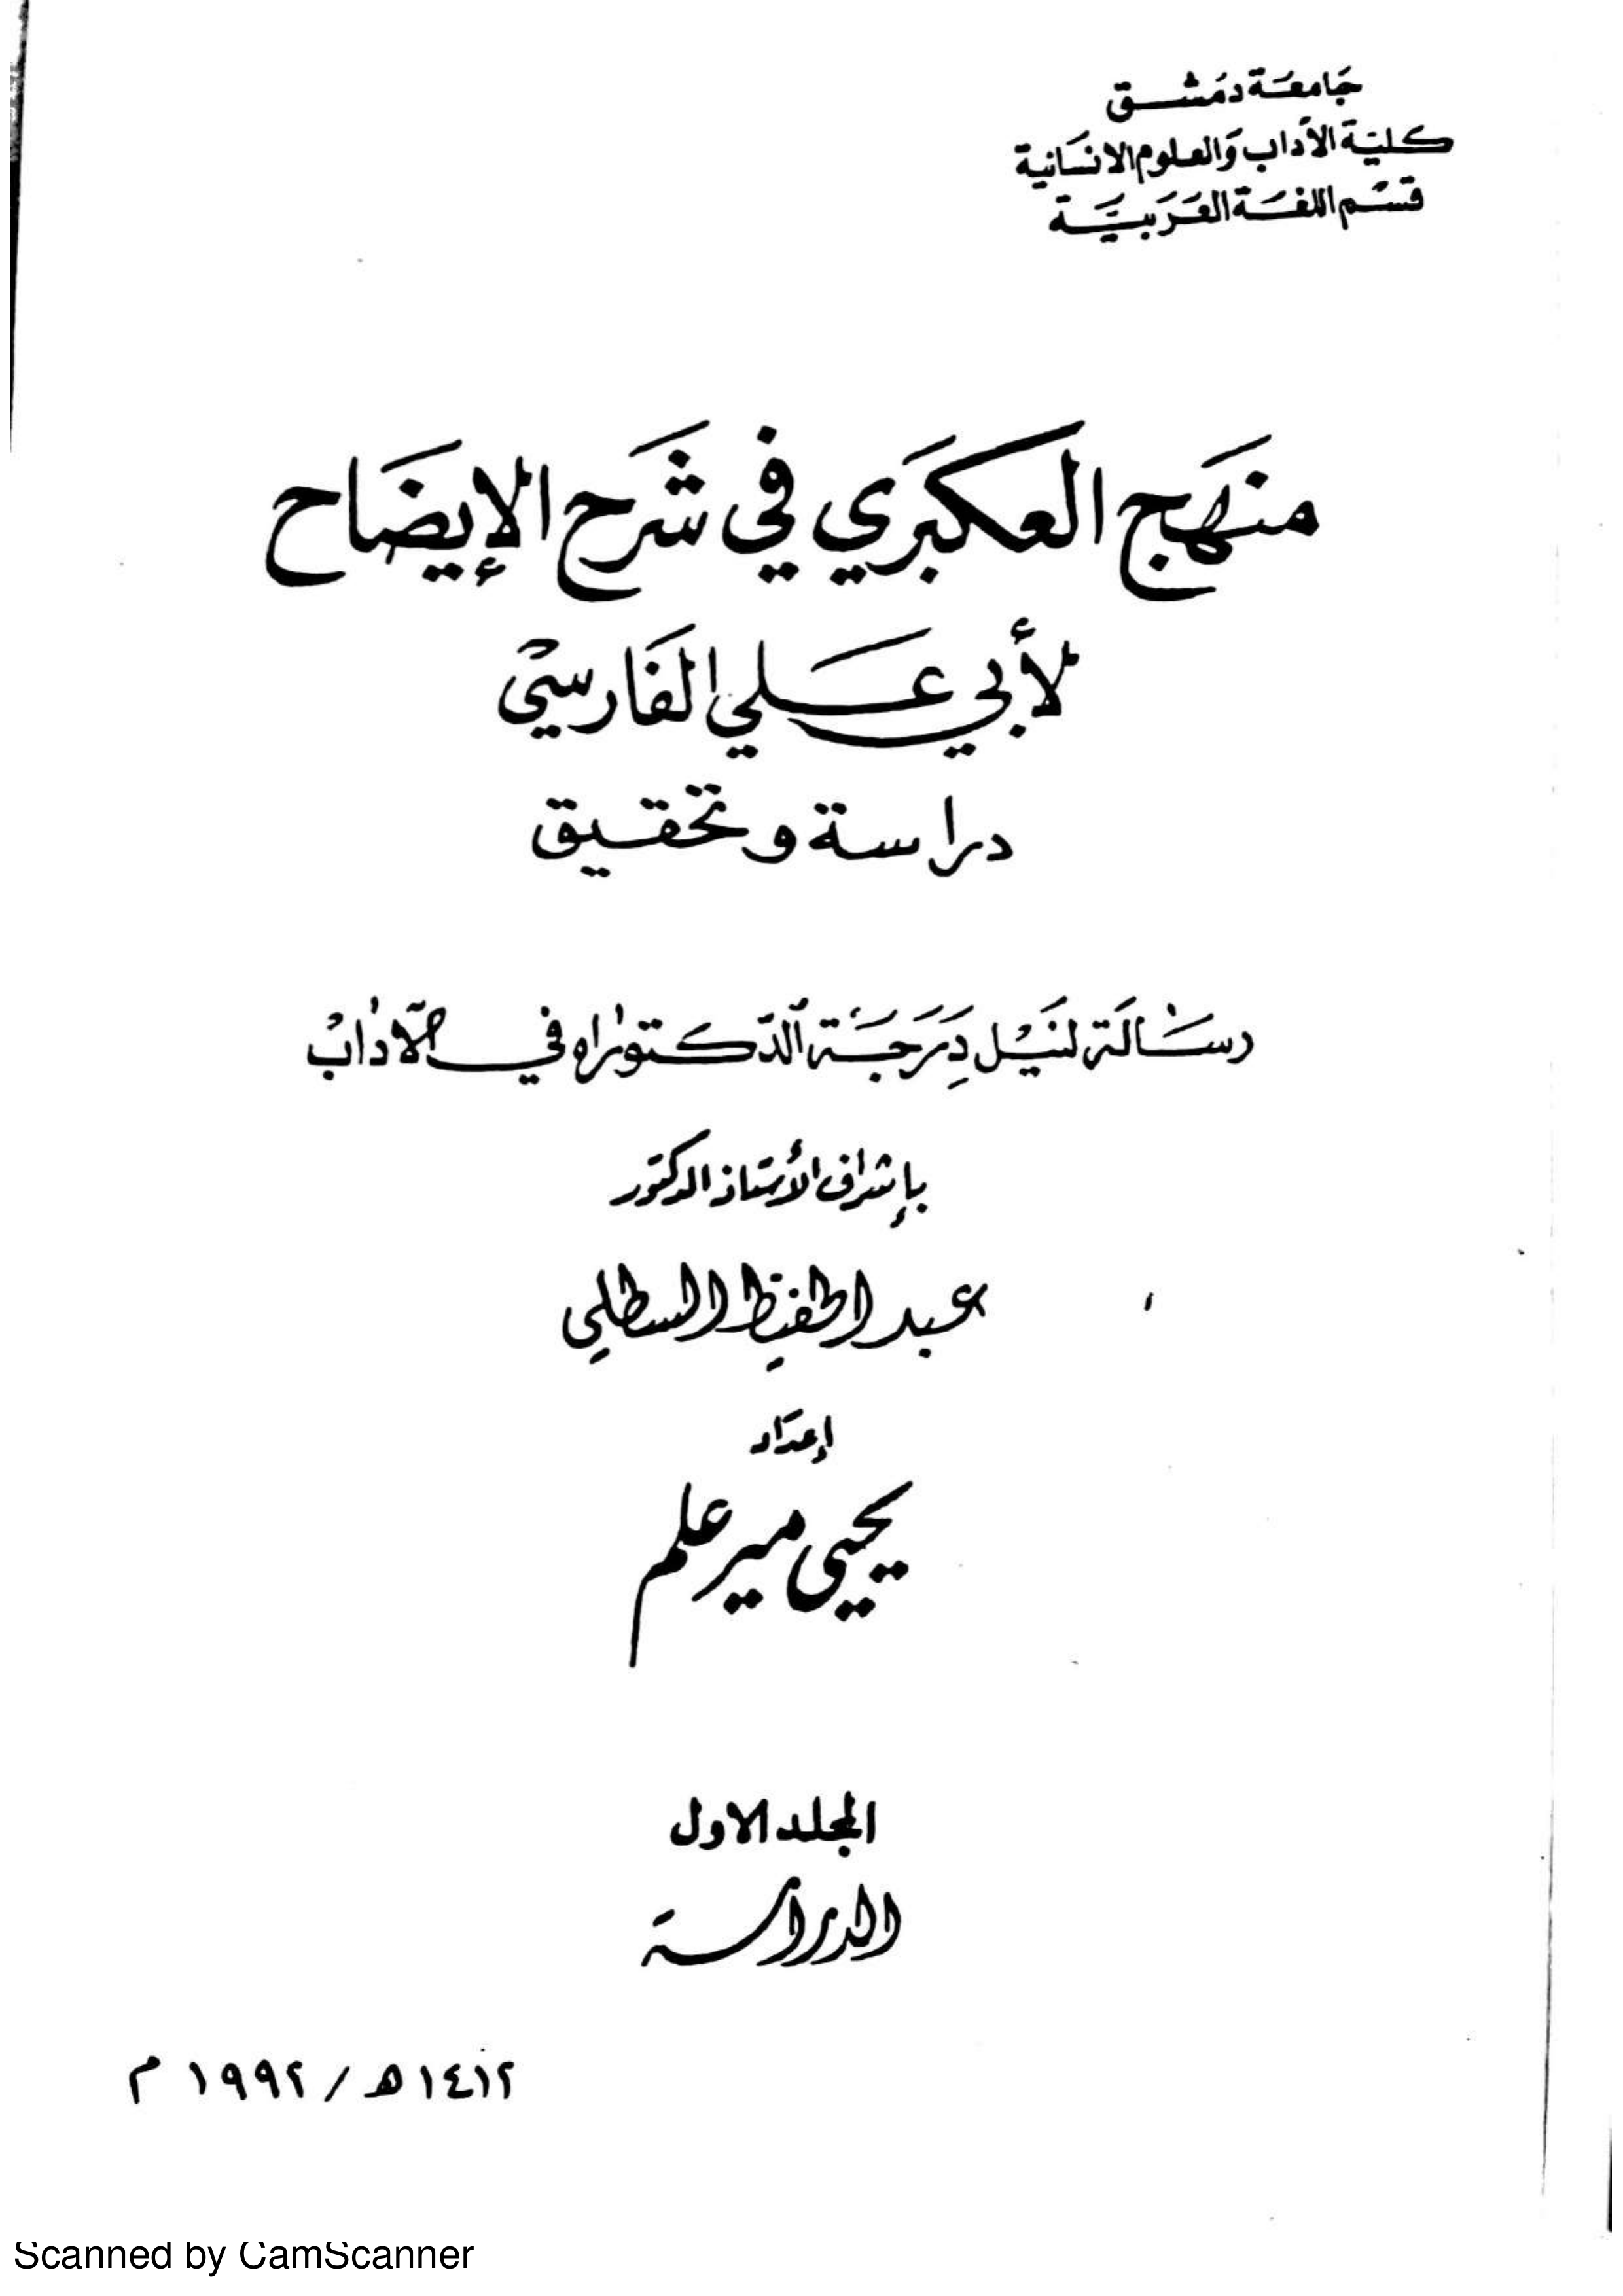 جامعة دمشق
كلية الآداب والعلوم الانسانية
قسم اللغة العربية
منهج العكبري في شرح الإيضاح
لأبي علي الفارسي
دراسة وتحقيق
رسالة لنيل درجة الدكتوراه في الآداب
بإشراف الأستاذ الدكتور
عبد الحفيظ السطلي
إعداد
يحيى مير علم
المجلد الاول
الدراسة
١٤١٢ هـ / ١٩٩٢ م
Scanned by CamScanner